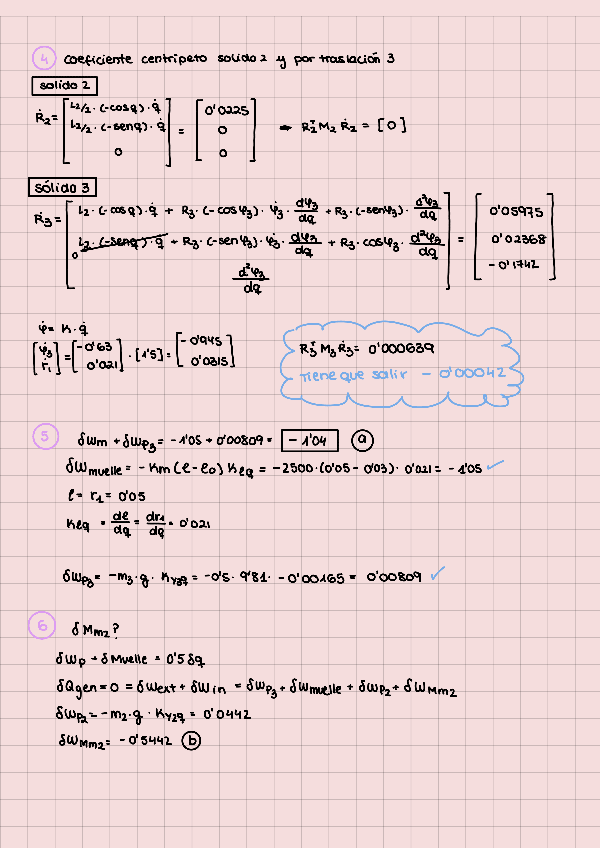 4 coeficiente centripeto solido 2 y por traslación 3
solido 2
Ṙ₂ = [ L₂/₂ · (-cosq) · q̇ ; L₂/₂ · (-senq) · q̇ ; 0 ] = [ 0'0225 ; 0 ; 0 ] → R₂ᵀ M₂ Ṙ₂ = [0]
sólido 3
Ṙ₃ = [ L₂ · (-cosq) · q̇ + R₃ · (-cosφ₃) · φ̇₃ · dφ₃/dq + R₃ · (-senφ₃) · d²φ₃/dq ; L₂ · (-senq) · q̇ 0 + R₃ · (-senφ₃) · φ̇₃ · dφ₃/dq + R₃ · cosφ₃ · d²φ₃/dq ; d²φ₃/dq ] = [ 0'05975 ; 0'02368 ; -0'1742 ]
φ̇ = K · q̇
[ φ̇₃ ; ṙ₁ ] = [ -0'63 ; 0'021 ] · [1'5] = [ -0'945 ; 0'0315 ]
R₃ᵀ M₃ Ṙ₃ = 0'000639
Tiene que salir - 0'00042
5 δWm + δWp₃ = -1'05 + 0'00809 = -1'04 a
δWmuelle = -Km (l-l₀) Klq = -2500 · (0'05 - 0'03) · 0'021 = -1'05 ✓
l = r₁ = 0'05
Klq = dl/dq = dr₁/dq = 0'021
δWp₃ = -m₃ · g · Ky₃q = -0'5 · 9'81 · -0'00165 = 0'00809 ✓
6 δMm₂?
δWp + δMuelle = 0'5 δq
δQgen = 0 = δWext + δWin = δWp₃ + δWmuelle + δWp₂ + δWMm₂
δWp₂ = -m₂ · g · Ky₂q = 0'0442
δWMm₂ = -0'5442 b